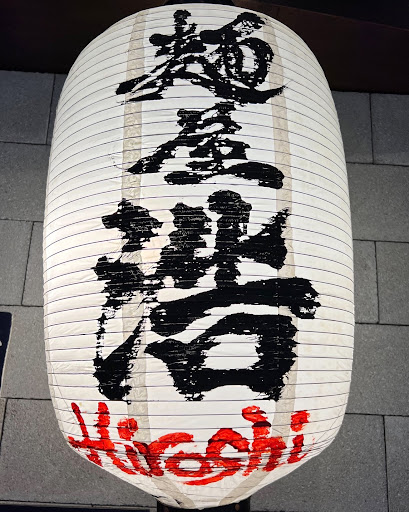 麺屋浩
Hiroshi